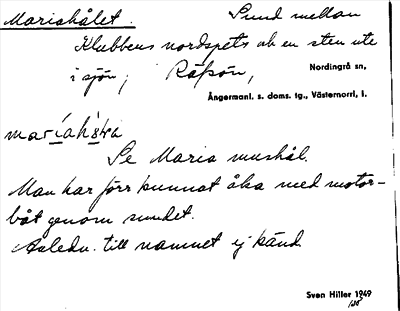 Mariahålet. Sund mellan
Klubbens nordspets och en sten ute
i sjön, Råfsön,
Nordingrå sn,
Ångermanl. s. doms. tg., Västernorrl. l.
Se Maria mushål.
Man har förr kunnat åka med motor-
båt genom sundet.
Anledn. till namnet ej känd
Sven Hiller 1949